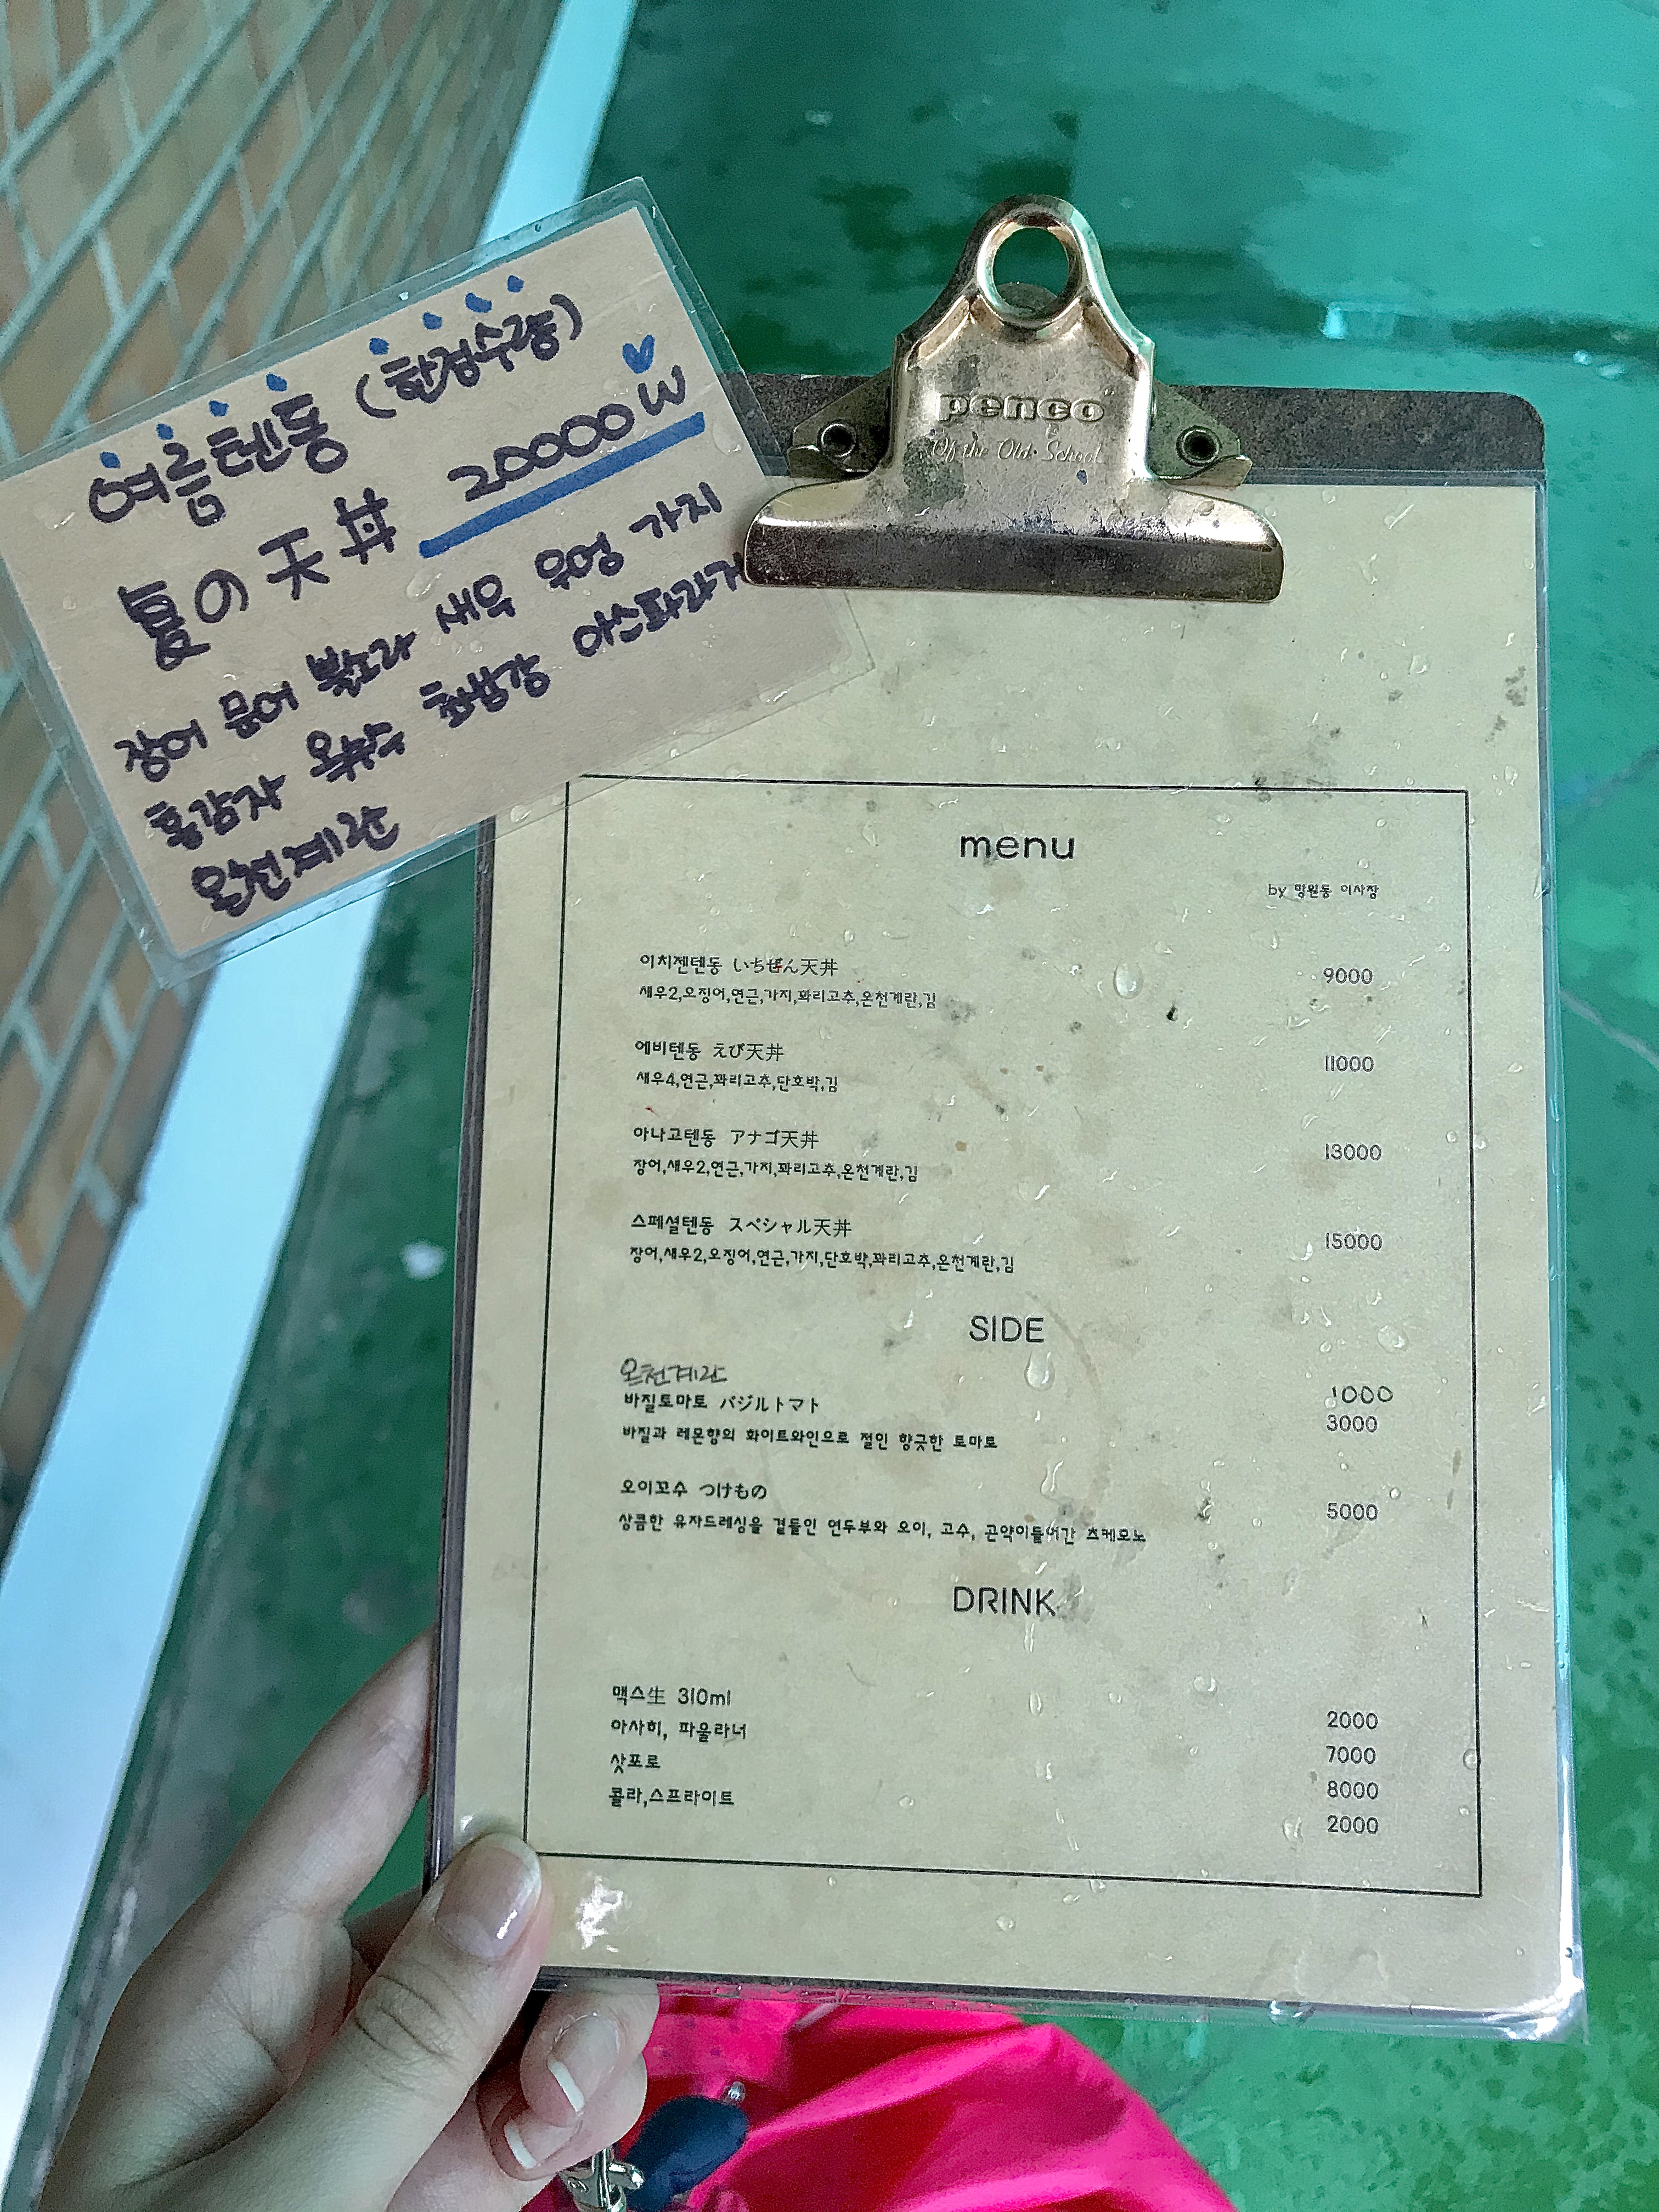 여름텐동 (한정수량)
夏の天丼 20000₩
장어 문어 새우 우엉 가지
홍감자 옥수수 초당 아스파라거
온천계란
penco
Of the Old School
menu
by 망원동 이사장
이치젠텐동 いちぜん天丼 9000
새우2,오징어,연근,가지,꽈리고추,온천계란,김
에비텐동 えび天丼 11000
새우4,연근,꽈리고추,단호박,김
아나고텐동 アナゴ天丼 13000
장어,새우2,연근,가지,꽈리고추,온천계란,김
스페셜텐동 スペシャル天丼 15000
장어,새우2,오징어,연근,가지,단호박,꽈리고추,온천계란,김
SIDE
온천계란 1000
바질토마토 バジルトマト 3000
바질과 레몬향의 화이트와인으로 절인 향긋한 토마토
오이꼬수 つけもの 5000
상콤한 유자드레싱을 곁들인 연두부와 오이, 고수, 곤약이들어간 츠케모노
DRINK
맥스生 310ml 2000
아사히, 파울라너 7000
삿포로 8000
콜라,스프라이트 2000